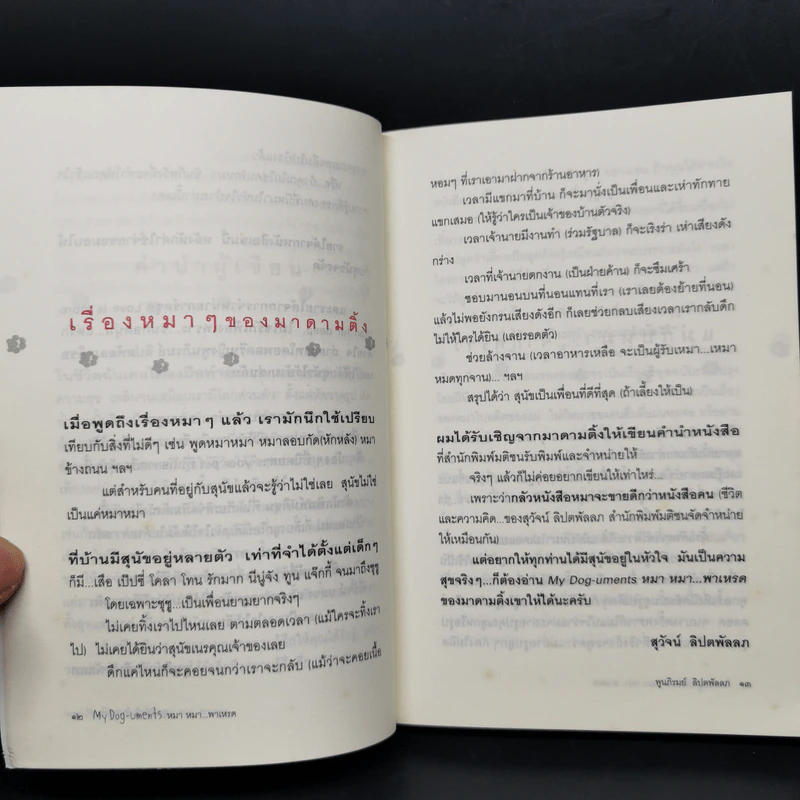 เรื่องหมาๆของมาดามติ้ง
เมื่อพูดถึงเรื่องหมาๆ แล้ว เรามักนึกใช้เปรียบ
เทียบกับสิ่งที่ไม่ดีๆ เช่น พูดหมาหมา หมาลอบกัด(หักหลัง) หมา
ข้างถนน ฯลฯ
แต่สำหรับคนที่อยู่กับสุนัขแล้วจะรู้ว่าไม่ใช่เลย สุนัขไม่ใช่
เป็นแค่หมาหมา
ที่บ้านมีสุนัขอยู่หลายตัว เท่าที่จำได้ตั้งแต่เด็กๆ
ก็มี...เสือ เป๊ปซี่ โคลา โทน รักมาก นีนู่จัง ทูน แจ๊กกี้ จนมาถึงซูซู
โดยเฉพาะซูซู...เป็นเพื่อนยามยากจริงๆ
ไม่เคยทิ้งเราไปไหนเลย ตามตลอดเวลา (แม้ใครจะทิ้งเรา
ไป) ไม่เคยได้ยินว่าสุนัขเนรคุณเจ้าของเลย
ดึกแค่ไหนก็จะคอยจนกว่าเราจะกลับ (แม้ว่าจะคอยเนื้อ
๑๒ My Dog-uments หมา หมา...พาเหรด
หอมๆ ที่เราเอามาฝากจากร้านอาหาร)
เวลามีแขกมาที่บ้าน ก็จะมานั่งเป็นเพื่อนและเห่าทักทาย
แขกเสมอ (ให้รู้ว่าใครเป็นเจ้าของบ้านตัวจริง)
เวลาเจ้านายมีงานทำ (ร่วมรัฐบาล) ก็จะเริงร่า เห่าเสียงดัง
กร่าง
เวลาที่เจ้านายตกงาน (เป็นฝ่ายค้าน) ก็จะซึมเศร้า
ชอบมานอนบนที่นอนแทนที่เรา (เราเลยต้องย้ายที่นอน)
แล้วไม่พอยังกรนเสียงดังอีก ก็เลยช่วยกลบเสียงเวลาเรากลับดึก
ไม่ให้ใครได้ยิน (เลยรอดตัว)
ช่วยล้างจาน (เวลาอาหารเหลือ จะเป็นผู้รับเหมา...เหมา
หมดทุกจาน)... ฯลฯ
สรุปได้ว่า สุนัขเป็นเพื่อนที่ดีที่สุด (ถ้าเลี้ยงให้เป็น)
ผมได้รับเชิญจากมาดามติ้งให้เขียนคำนำหนังสือ
ที่สำนักพิมพ์มติชนรับพิมพ์และจำหน่ายให้
จริงๆ แล้วก็ไม่ค่อยอยากเขียนให้เท่าไหร่...
เพราะว่ากลัวหนังสือหมาจะขายดีกว่าหนังสือคน (ชีวิต
และความคิด...ของสุวัจน์ ลิปตพัลลภ สำนักพิมพ์มติชนจัดจำหน่าย
ให้เหมือนกัน)
แต่อยากให้ทุกท่านได้มีสุนัขอยู่ในหัวใจ มันเป็นความ
สุขจริงๆ...ก็ต้องอ่าน My Dog-uments หมา หมา...พาเหรด
ของมาดามติ้งเขาให้ได้นะครับ
สุวัจน์ ลิปตพัลลภ
พูนภิรมย์ ลิปตพัลลภ ๑๓